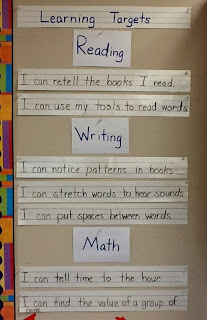 Learning Targets
Reading
I can retell the books I read
I can use my tools to read words
Writing
I can notice patterns in books
I can stretch words to hear sounds
I can put spaces between words
Math
I can tell time to the hour
I can find the value of a group of